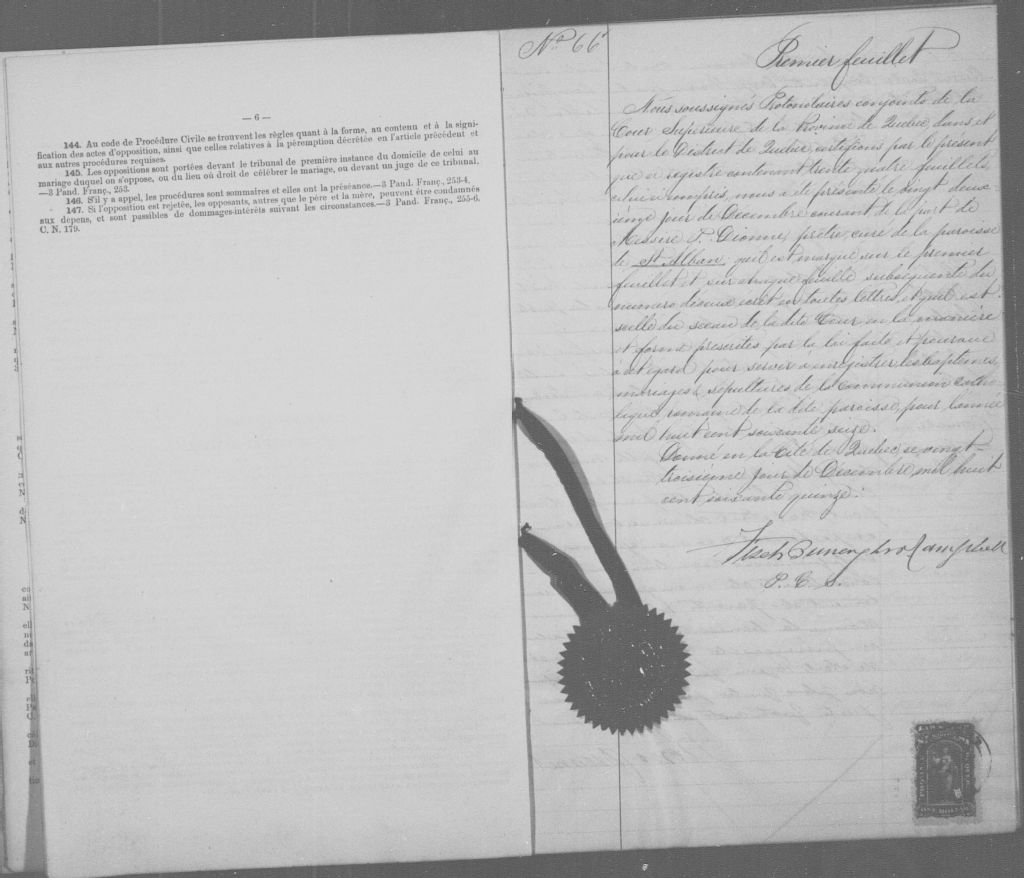 — 6 —
144. Au code de Procédure Civile se trouvent les règles quant à la forme, au contenu et à la signi-
fication des actes d'opposition, ainsi que celles relatives à la péremption décrétée en l'article précédent et
aux autres procédures requises.
145. Les oppositions sont portées devant le tribunal de première instance du domicile de celui au
mariage duquel on s'oppose, ou du lieu où droit de célébrer le mariage, ou devant un juge de ce tribunal.
—3 Pand. Franç., 253.
146. S'il y a appel, les procédures sont sommaires et elles ont la préséance.—3 Pand. Franç., 253-4.
147. Si l'opposition est rejetée, les opposants, autres que le père et la mère, peuvent être condamnés
aux dépens, et sont passibles de dommages-intérêts suivant les circonstances.—3 Pand. Franç., 255-6.
C. N. 179.
No 66
Premier feuillet
Nous soussignés Protonotaires conjoints de la
Cour Supérieure de la Province de Québec, dans et
pour le District de Québec certifions par le présent
que ce registre contenant trente quatre feuillets,
celui-ci compris, nous a été présenté le vingt deux-
ième jour de Décembre courant de la part de
Messire P. Dionne, prêtre, curé de la paroisse
de St Alban, qu'il est marqué sur ce premier
feuillet et sur chaque feuille subséquente du
numéro d'iceux écrit en toutes lettres, et qu'il est
scellé du sceau de la dite Cour, en la manière
et forme prescrites par la loi faite et pourvue
à cet égard pour servir à enregistrer les baptêmes,
mariages & sépultures de la Communion catho-
lique romaine de la dite paroisse, pour l'année
mil huit cent soixante seize.
Donné en la Cité de Québec, ce vingt-
troisième jour de Décembre mil huit
cent soixante quinze.
Campbell
P. C. S.
ONE DOLLAR